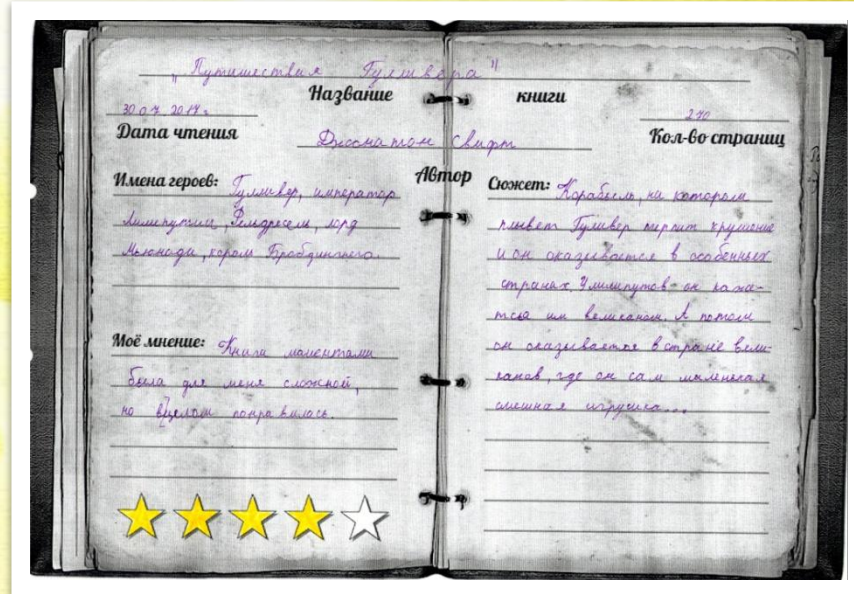 „Путишествия Гулливера"
Название книги
30.07.2017г.
270
Дата чтения
Джонатан Свифт
Кол-во страниц
Автор
Имена героев: Гулливер, император
Лилипутии, Рельдресель, лорд
Мьюноди, король Бробдингнега.
Моё мнение: Книга моментами
была для меня сложной,
но вцелом понравилась.
Сюжет: Корабыль, на котором
плывет Гуливер терпит крушение
и он оказывается в особенных
странах. У лилипутов он кажа-
тся им великаном. А потом
он оказывается в стране вели-
канов, где он сам миленькая
смешная игрушка...